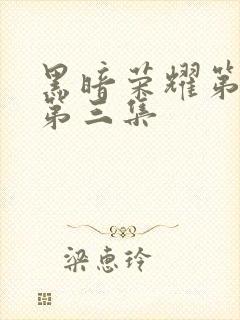 黑暗荣耀第
第三集
梁惠玲